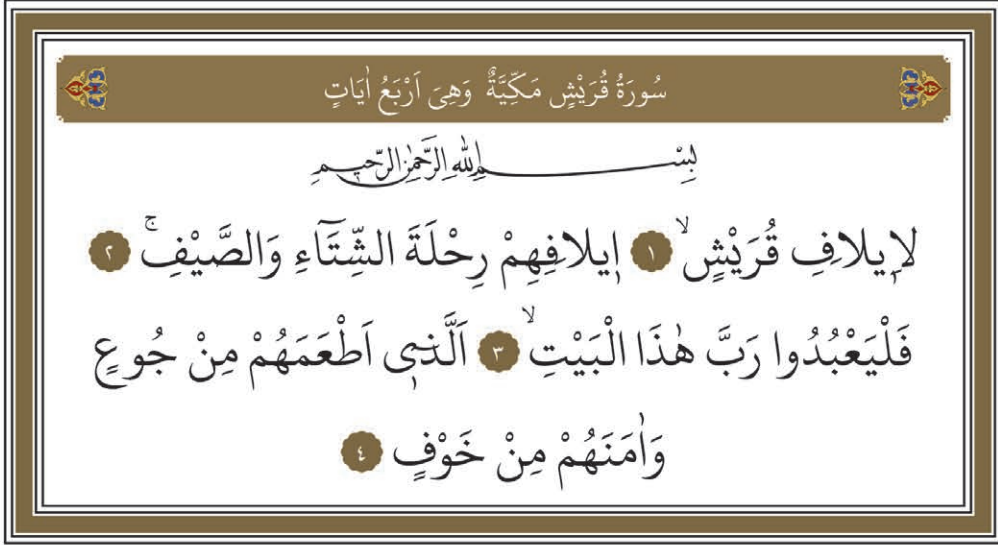 سُورَةُ قُرَيْشٍ مَكِّيَّةٌ وَهِىَ اَرْبَعُ اٰيَاتٍ
بِسْمِ اللّٰهِ الرَّحْمٰنِ الرَّحٖيمِ
لِاٖيلَافِ قُرَيْشٍۙ ١ اٖيلَافِهِمْ رِحْلَةَ الشِّتَٓاءِ وَالصَّيْفِۚ ٢
فَلْيَعْبُدُوا رَبَّ هٰذَا الْبَيْتِۙ ٣ اَلَّذٖٓى اَطْعَمَهُمْ مِنْ جُوعٍ
وَاٰمَنَهُمْ مِنْ خَوْفٍ ٤